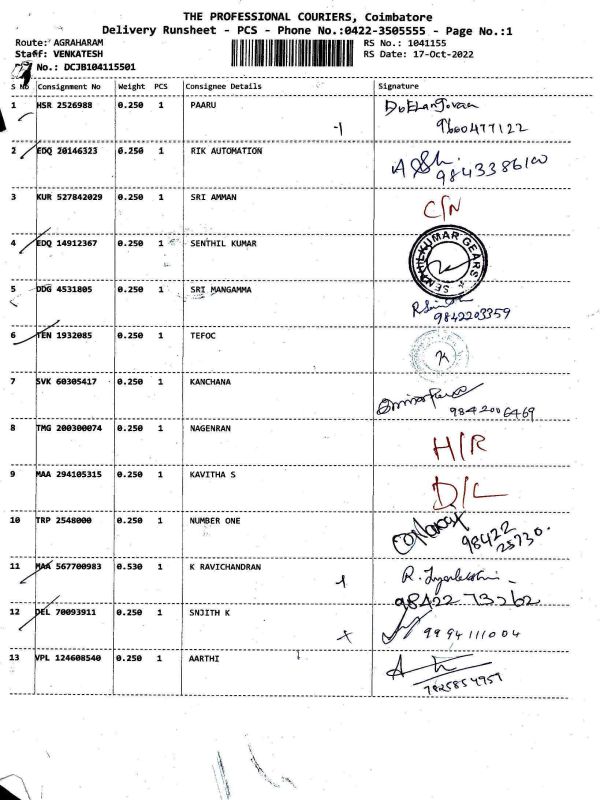 THE PROFESSIONAL COURIERS, Coimbatore
Delivery Runsheet - PCS - Phone No.:0422-3505555 - Page No.:1
Route: AGRAHARAM RS No.: 1041155
Staff: VENKATESH RS Date: 17-Oct-2022
No.: DCJB104115501
S No Consignment No Weight PCS Consignee Details Signature
1 HSR 2526988 0.250 1 PAARU
9600477122
2 EDQ 20146323 0.250 1 RIK AUTOMATION
9843386100
3 KUR 527842029 0.250 1 SRI AMMAN C/N
4 EDQ 14912367 0.250 1 SENTHIL KUMAR SENTHILKUMAR GEARS
5 DDG 4531805 0.250 1 SRI MANGAMMA
9842203359
6 TEN 1932085 0.250 1 TEFOC
7 SVK 60305417 0.250 1 KANCHANA
9842006469
8 TMG 200300074 0.250 1 NAGENRAN H/R
9 MAA 294105315 0.250 1 KAVITHA S D/L
10 TRP 2548000 0.250 1 NUMBER ONE 98422
25730.
11 MAA 567700983 0.530 1 K RAVICHANDRAN
98422 73262
12 DEL 70093911 0.250 1 SNJITH K 9994111004
13 VPL 124608540 0.250 1 AARTHI
7825854959